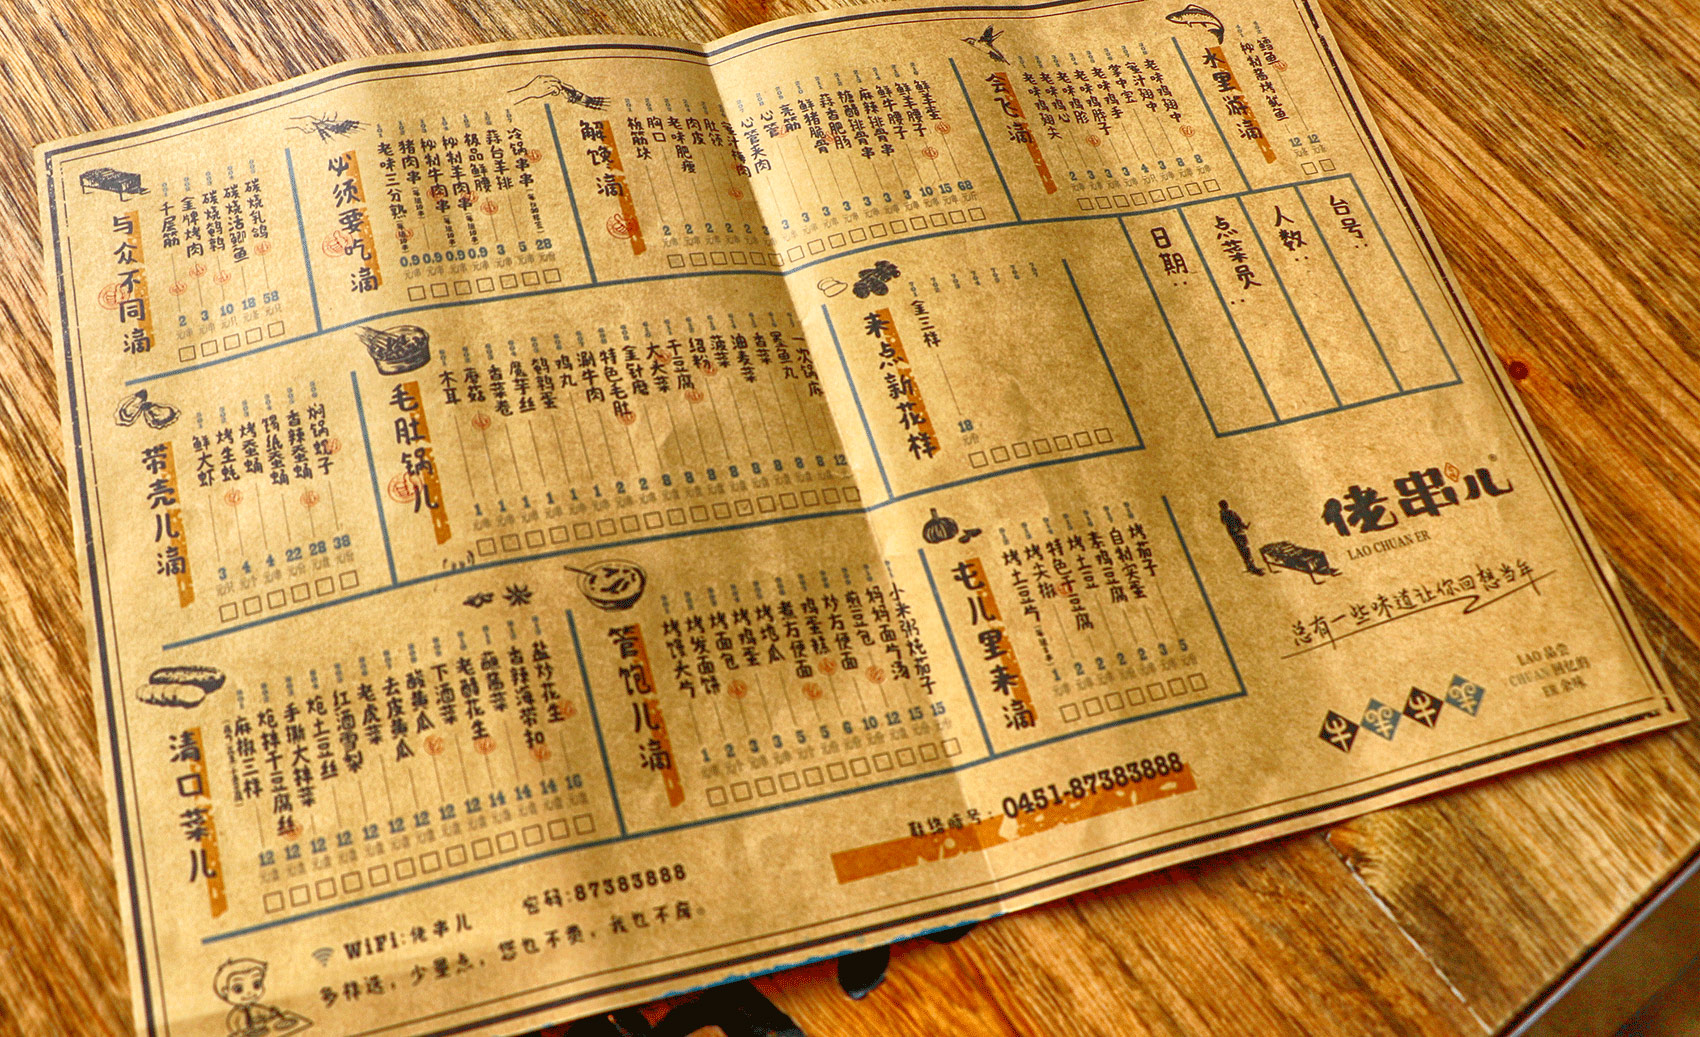 与众不同滴
千层筋
金牌烤肉
碳烧鹌鹑
碳烧活鲫鱼
碳烧乳鸽
2 3 10 18 58
必须要吃滴
老味三分熟
猪肉串
秘制牛肉串
秘制羊肉串
极品鲜腰
蒜台羊排
冷锅串串
0.9 0.9 0.9 0.9 3 5 28
解馋滴
板筋块
胸口
老味肥瘦
肉皮
肚领
心管夹肉
心管
亮筋
鲜猪脆骨
蒜香肥肠
糖醋排骨串
麻辣排骨串
鲜牛腰子
鲜羊腰子
鲜羊蛋
2 2 2 2 2 3 3 3 3 3 3 3 10 15 68
会飞滴
老味鸡翅尖
老味鸡心
老味鸡胗
老味鸡脖子
掌中宝
蜜汁翅中
老味鸡翅中
2 3 3 3 4 3 8 8
水里游滴
秘制酱烤鱿鱼
鳕鱼
12 12
带壳儿滴
鲜大虾
烤生蚝
烤蚕蛹
锡纸蚕蛹
香辣蚕蛹
焖锅蚬子
3 4 4 22 28 38
毛肚锅儿
木耳
蘑菇
香菜卷
魔芋丝
鹌鹑蛋
鸡丸
涮牛肉
特色毛肚
金针菇
大头菜
干豆腐
绍粉
菠菜
油麦菜
香菜
墨鱼丸
一次锅底
来点新花样
金三样
18
日期：
点菜员：
人数：
台号：
清口菜儿
麻椒三样
炝拌干豆腐丝
手撕大拌菜
炝土豆丝
红酒雪梨
老虎菜
去皮黄瓜
酸黄瓜
下酒菜
老醋花生
蘸酱菜
香辣海带扣
盐炒花生
12 12 12 12 12 12 12 12 12 14 14 14 16
管饱儿滴
烤馒头片
烤发面饼
烤面包
烤鸡蛋
烤地瓜
老方便面
鸡蛋糕
炒方便面
煎豆包
妈妈面片汤
小米粥炖茄子
1 2 2 3 3 5 5 6 10 12 15 15
屯儿里来滴
烤土豆片
烤尖椒
特色干豆腐
烤土豆
来鸡豆腐
自制实蛋
烤茄子
1 2 2 2 2 3 5
佬串儿
LAO CHUAN ER
总有一些味道让你回想当年
LAO 品尝
CHUAN 回忆的
ER 余味
联络暗号：0451-87383888
WiFi:佬串儿 密码:87383888
多样选，少量点，您也不贵，我也不废。